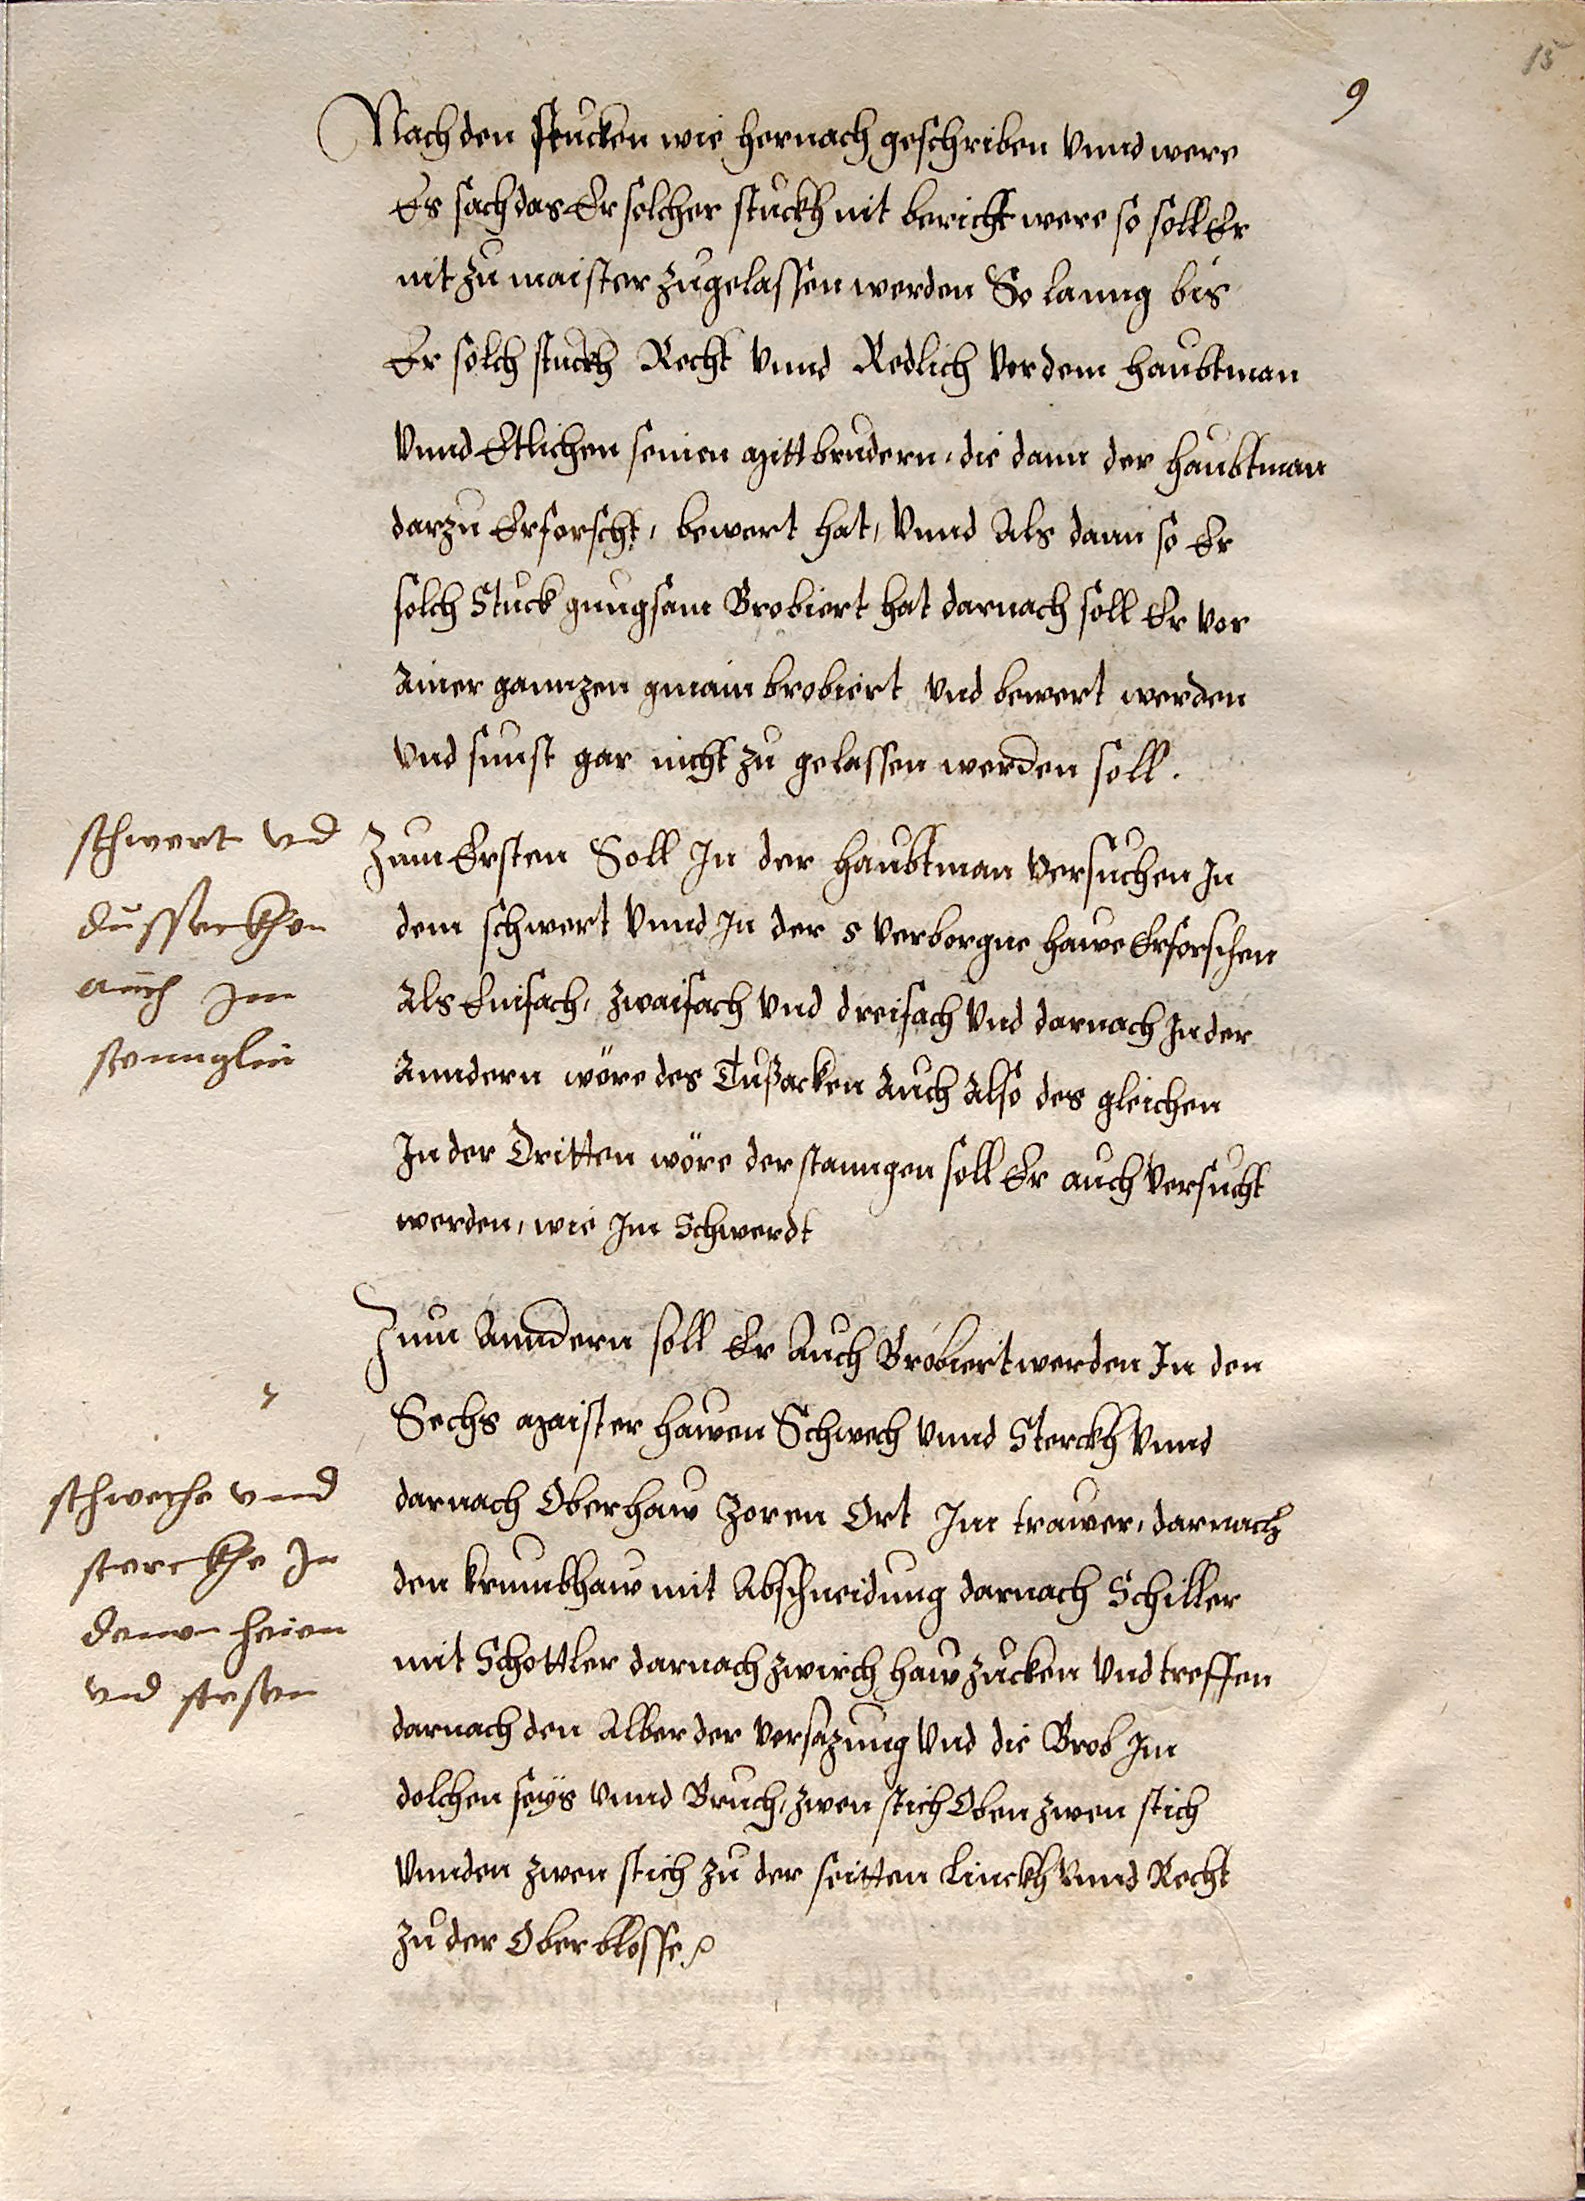 15
9
Nach den stucken wie hernach geschriben vnnd were
Es sach das Er solcher stuckh nit bericht were so soll Er
nit zu maister zugelassen werden So lanng bis
Er solch stuckh Recht vnnd Redlich vor dem haubtman
vnnd Etlichen seinen mitt brudern, die dann der haubtman
darzu Erforscht, bewert hat, vnnd Als dann so Er
solch Stuck gnugsam Brobiert hat darnach soll Er vor
Ainer gannzen gmain brobiert vnd bewert werden
vnd sunst gar nicht zu gelassen werden soll.
schwert vnd
dussackhen
auch Im
stennglin
Zum Ersten Soll In der haubtman versuchen In
dem schwert vnnd In der 5 verborgne hawe Erforschen
Als Einfach, zwaifach vnd dreifach vnd darnach In der
Anndern wöre des Tußacken Auch Also des gleichen
In der Dritten wöre der stanngen soll Er auch versucht
werden, wie Im Schwerdt
Zum Anndern soll Er Auch Brobiert werden In den
Sechs maister hawen Schwech vnnd Sterckh vnnd
darnach Oberhaw zoren Ort Im trawer, darnach
den krumbhaw mit Abschneidung darnach Schiller
mit Schottler darnach zwirch haw zucken vnd treffen
darnach den Alber der versazung vnd die Brob Im
dolchen seys vnnd Bruch, zwen stich Oben zwen stich
vnnden zwen stich zu der seitten Linckh vnnd Recht
zu der Ober blosse
schweche vnnd
sterckhe In
vnd